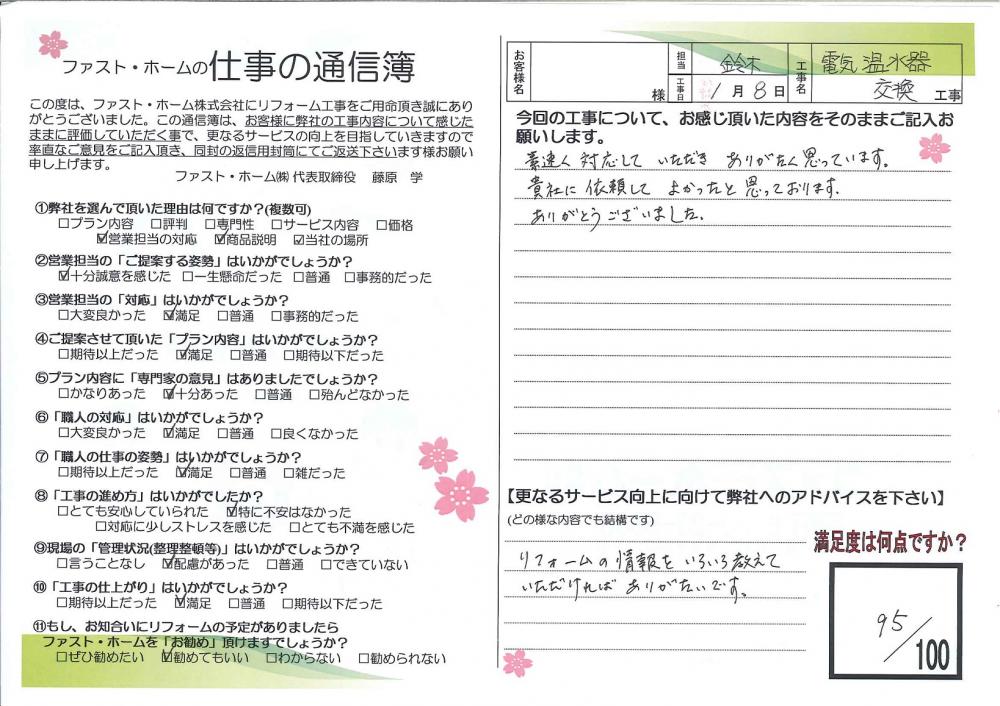 ファスト・ホームの仕事の通信簿
この度は、ファスト・ホーム株式会社にリフォーム工事をご用命頂き誠にあり
がとうございました。この通信簿は、お客様に弊社の工事内容について感じた
ままに評価していただく事で、更なるサービスの向上を目指していきますので
率直なご意見をご記入頂き、同封の返信用封筒にてご返送下さいます様お願い
申し上げます。
ファスト・ホーム㈱ 代表取締役 藤原 学
①弊社を選んで頂いた理由は何ですか?(複数可)
□プラン内容 □評判 □専門性 □サービス内容 □価格
☑営業担当の対応 ☑商品説明 ☑当社の場所
②営業担当の「ご提案する姿勢」はいかがでしょうか?
☑十分誠意を感じた □一生懸命だった □普通 □事務的だった
③営業担当の「対応」はいかがでしょうか?
□大変良かった ☑満足 □普通 □事務的だった
④ご提案させて頂いた「プラン内容」はいかがでしょうか?
□期待以上だった ☑満足 □普通 □期待以下だった
⑤プラン内容に「専門家の意見」はありましたでしょうか?
□かなりあった ☑十分あった □普通 □殆んどなかった
⑥「職人の対応」はいかがでしょうか?
□大変良かった ☑満足 □普通 □良くなかった
⑦「職人の仕事の姿勢」はいかがでしょうか?
□期待以上だった ☑満足 □普通 □雑だった
⑧「工事の進め方」はいかがでしたか?
□とても安心していられた ☑特に不安はなかった
□対応に少しストレスを感じた □とても不満を感じた
⑨現場の「管理状況(整理整頓等)」はいかがでしょうか?
□言うことなし ☑配慮があった □普通 □できていない
⑩「工事の仕上がり」はいかがでしょうか?
□期待以上だった ☑満足 □普通 □期待以下だった
⑪もし、お知合いにリフォームの予定がありましたら
ファスト・ホームを「お勧め」頂けますでしょうか?
□ぜひ勧めたい ☑勧めてもいい □わからない □勧められない
お客様名 様 担当 鈴木 工事日 1月8日 工事名 電気温水器
交換 工事
今回の工事について、お感じ頂いた内容をそのままご記入お
願いします。
素速く対応して いただき ありがたく思っています。
貴社に依頼して よかったと思っております。
ありがとうございました。
【更なるサービス向上に向けて弊社へのアドバイスを下さい】
(どの様な内容でも結構です)
リフォームの情報を いろいろ教えて
いただければ ありがたいです。
満足度は何点ですか?
95/100